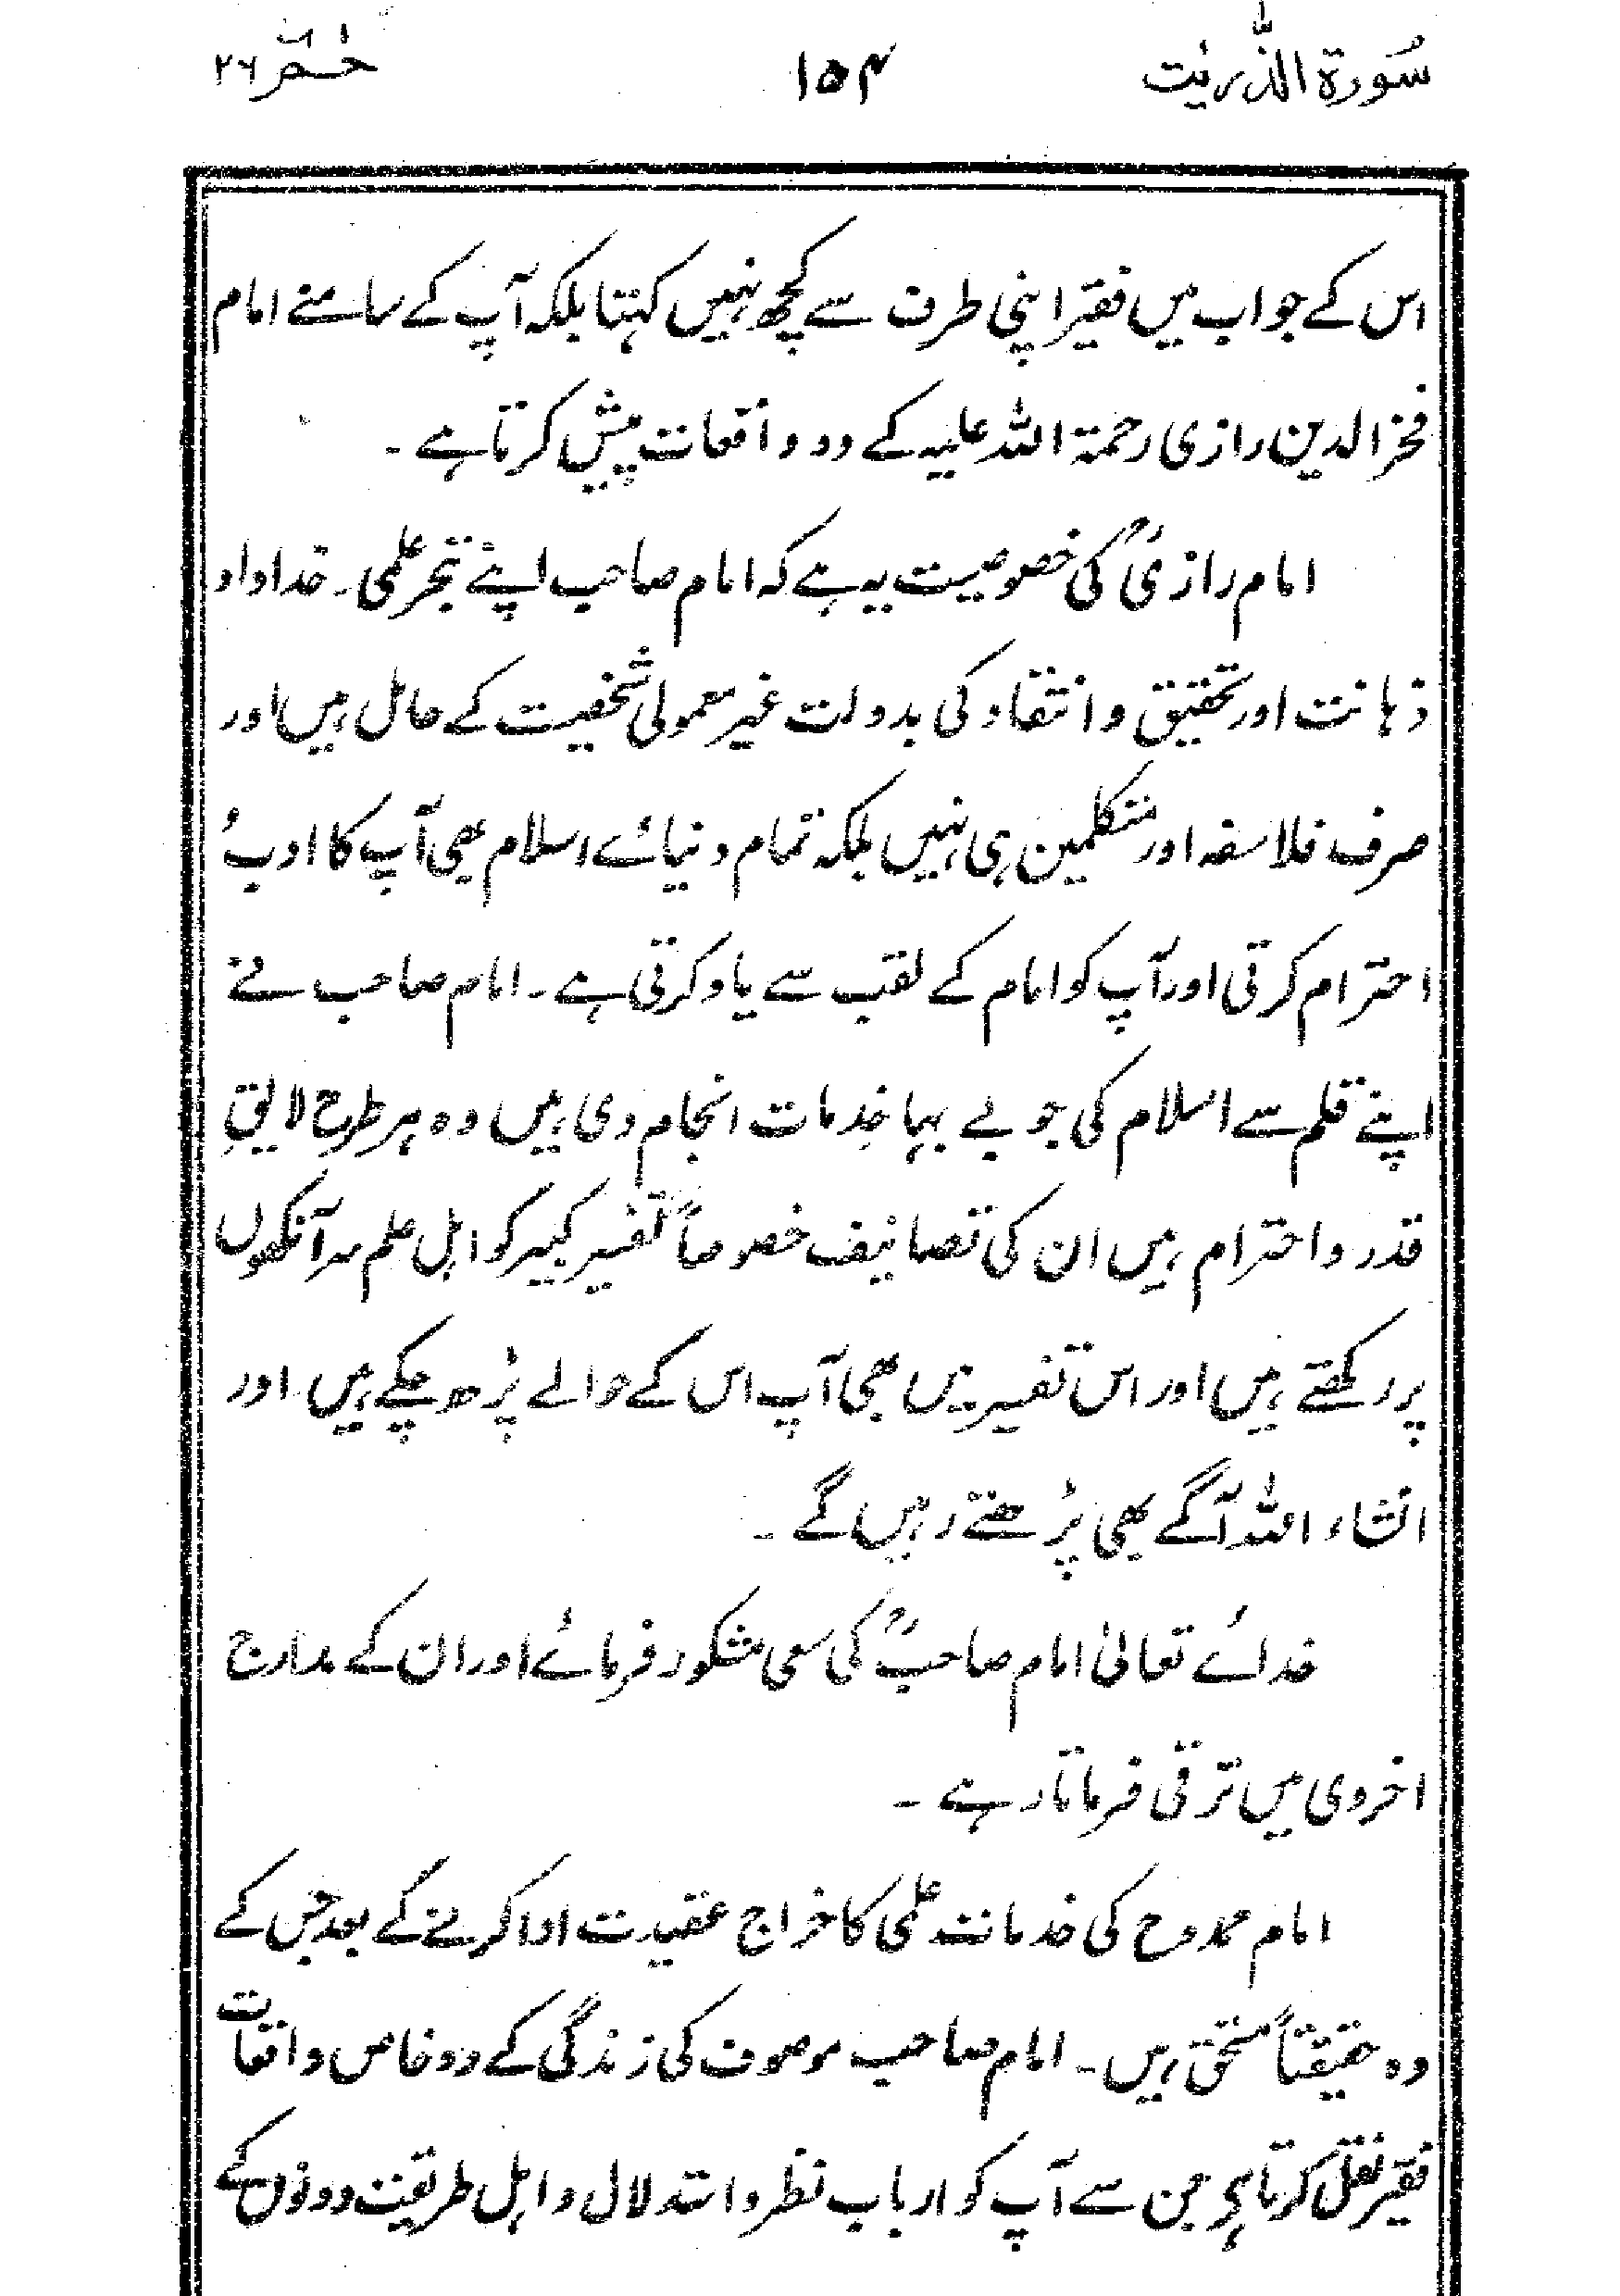 سُورۃ الذّٰریٰت ۱۵۴ حٰمٓ ۲۶
اس کے جواب میں فقیر اپنی طرف سے کچھ نہیں کہتا بلکہ آپ کے سامنے امام
فخر الدین رازی رحمۃ اللہ علیہ کے دو واقعات پیش کرتا ہے ۔
امام رازیؒ کی خصوصیت یہ ہے کہ امام صاحب اپنے تبحر علمی ۔ خداداد
ذہانت اور تحقیق و انتقاد کی بدولت غیر معمولی شخصیت کے حامل ہیں اور
صرف فلاسفہ اور متکلمین ہی نہیں بلکہ تمام دنیائے اسلام بھی آپ کا ادب و
احترام کرتی اور آپ کو امام کے لقب سے یاد کرتی ہے ۔ امام صاحب نے
اپنے قلم سے اسلام کی جو بے بہا خدمات انجام دی ہیں وہ ہر طرح لایقِ
قدر و احترام ہیں ان کی تصانیف خصوصاً تفسیر کبیر کو اہل علم سر آنکھوں
پر رکھتے ہیں اور اس تفسیر میں بھی آپ اس کے حوالے پڑھ چکے ہیں اور
انشاء اللہ آگے بھی پڑھتے رہیں گے ۔
خدائے تعالیٰ امام صاحبؒ کی سعی مشکور فرمائے اور ان کے مدارج
اخروی میں ترقی فرماتا رہے ۔
امام ممدوح کی خدمات علمی کا خراج عقیدت ادا کرنے کے بعد جس کے
وہ حقیقتاً مستحق ہیں ۔ امام صاحب موصوف کی زندگی کے دو خاص واقعات
فقیر نقل کرتا ہے جن سے آپ کو ارباب نظر و استدلال و اہل طریقت دونوں کے